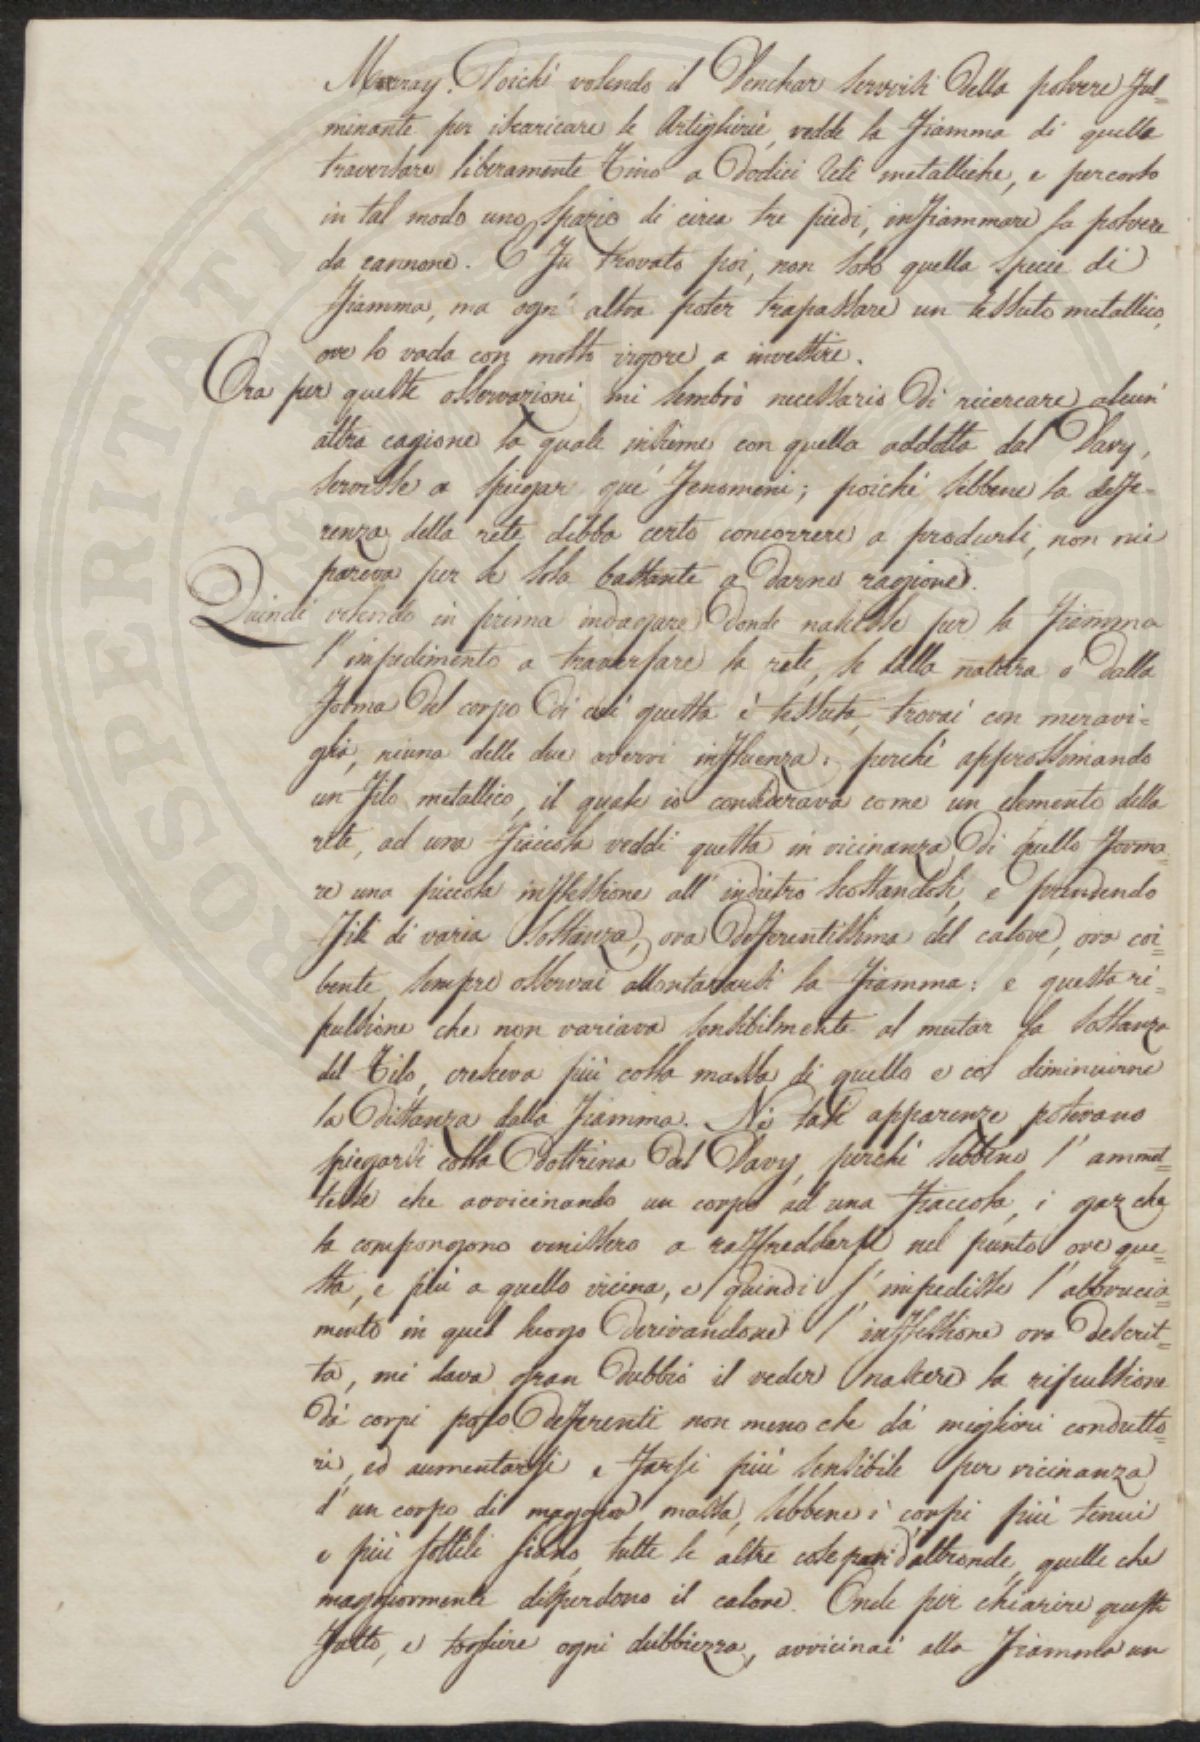 Murray. Poichè volendo il Denchar servirsi della polvere ful-
minante per iscaricare le Artiglierie, vedde la fiamma di quella
traversare liberamente fino a dodici reti metalliche, e percorso
in tal modo uno spazio di circa tre piedi, infiammare la polvere
da cannone. E fu trovato poi, non solo quella specie di
fiamma, ma ogn' altra poter trapassare un tessuto metallico,
ove lo vada con molto vigore a investire.
Ora per queste osservazioni mi sembrò necessario di ricercare alcun'
altra cagione la quale insieme con quella addotta dal Davy,
servisse a spiegar que' fenomeni; poichè sebbene la defe-
renza della rete debba certo concorrere a produrli, non mi
pareva per se sola bastante a darne ragione.
Quindi volendo in prima indagare donde nascesse per la fiamma
l' impedimento a traversare la rete, se dalla natura o dalla
forma del corpo di cui questa è tessuta, trovai con meravi-
glia, niuna delle due avervi influenza: perchè approssimando
un filo metallico, il quale io considerava come un elemento della
rete, ad una fiaccola veddi questa in vicinanza di quello forma-
re una piccola inflessione all' indietro scostandosi, e prendendo
fili di varia sostanza, ora deferentissima del calore, ora coi-
bente, sempre osservai allontanarsi la fiamma: e questa ri-
pulsione che non variava sensibilmente al mutar la sostanza
del filo, cresceva più colla massa di quello e col diminuirne
la distanza dalla fiamma. Nè tali apparenze potevano
spiegarsi colla dottrina del Davy, perchè sebbene l' ammet-
tesse che avvicinando un corpo ad una fiaccola, i gaz che
la compongono venissero a raffreddarsi nel punto ove que-
sta, è più a quello vicina, e quindi s' impedisse l' abbrucia-
mento in quel luogo derivandone l' inflessione ora descrit-
ta, mi dava gran dubbio il veder nascere la ripulsione
da' corpi poco deferenti non meno che da' migliori condutto-
ri, ed aumentarsi e farsi più sensibile per vicinanza
d' un corpo di maggior massa, sebbene i corpi più tenui
e più sottili siano, tutte le altre cose pari d'altronde, quelli che
maggiormente disperdono il calore. Onde per chiarire questo
fatto, e togliere ogni dubbiezza, avvicinai alla fiamma un
PROSPERITATI